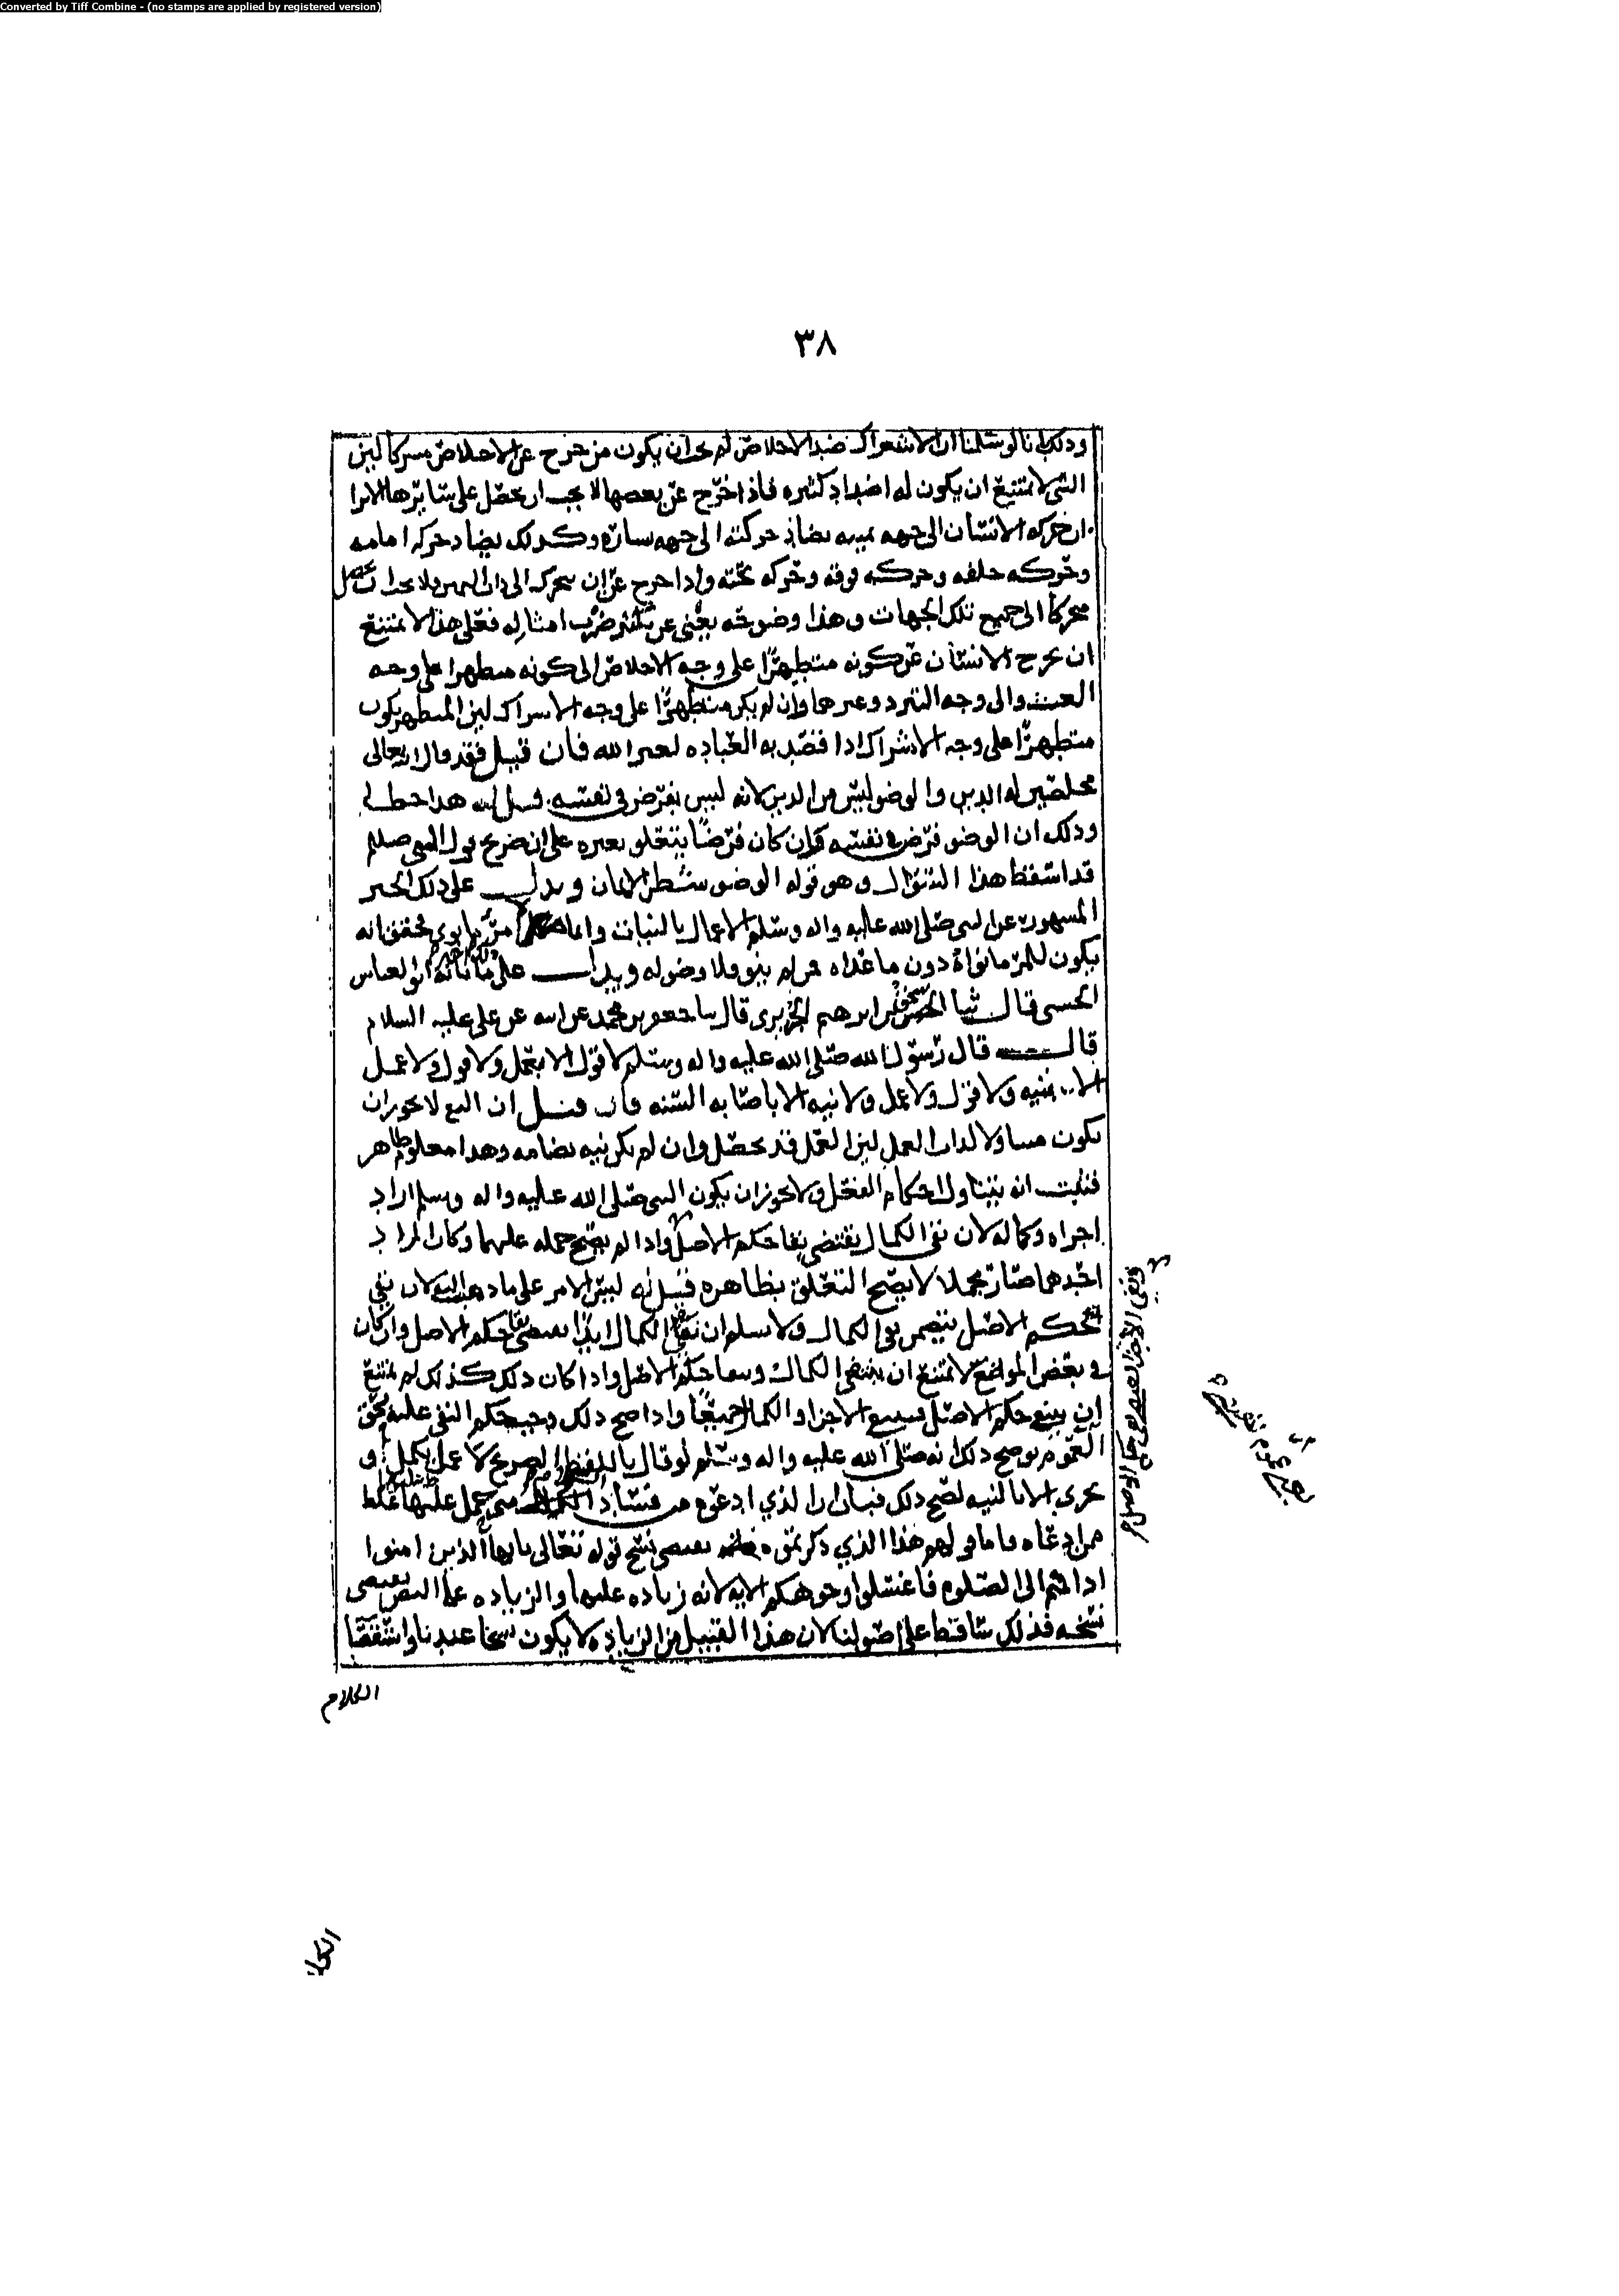 Converted by Tiff Combine - (no stamps are applied by registered version)
٣٨
وذلك انا لو سلمنا ان الاشراك ضد الاخلاص لم يجب ان يكون من خرج عن الاخلاص مشركا لان
الشي لا يمتنع ان يكون له اضداد كثيره فاذا خرج عن بعضها لا يجب ان يحصل على سائرها الا ترا
ان حركه الانسان الى جهه يمينه يضاد حركته الى جهه يساره وكذلك يضاد حركه امامه
وحركه خلفه وحركه فوقه وحركه تحته واذا خرج عن ان يتحرك الى ذات اليمين فلا يجب ان يحصل
متحركا الى جميع تلك الجهات وهذا وضوحه يغني عن تكثير ضرب امثاله فعلى هذا لا يمتنع
ان يخرج الانسان عن كونه متطهرا على وجه الاخلاص الى كونه متطهرا على وجه
العبث والى وجه التبرد وغيرها وان لم يكن متطهرا على وجه الاشراك لان المتطهر يكون
متطهرا على وجه الاشراك اذا قصد به العباده لغير الله فان قيل فقد قال الله تعالى
مخلصين له الدين والوضو ليس من الدين لانه ليس بفرض في نفسه قيل له هذا خطا
وذلك ان الوضو فرض في نفسه وان كان فرضا يتعلق بغيره على ان صريح قول النبي صلعم
قد اسقط هذا السؤال وهو قوله الوضو شطر الايمان ويدل على ذلك الخبر
المشهور عن النبي صلى الله عليه واله وسلم الاعمال بالنيات وانما لامرئ ما نوى فحقق انه
يكون للمرء ما نواه دون ما عداه فمن لم ينو فلا وضو له ويدل على ذلك ما اخبرنا به ابو العباس
الحسني قال ثنا الحسن بن ابرهيم قال ثنا جعفر بن محمد عن ابيه عن علي عليه السلام
قال قال رسول الله صلى الله عليه واله وسلم لا قول الا بعمل ولا قول ولا عمل
الا بنيه ولا قول ولا عمل ولا نيه الا باصابه السنه فان قيل ان النفي لا يجوز ان
يكون متناولا لذات العمل لان العمل قد يحصل وان لم يكن نيه تضامه وهذا معلوم ظاهر
فثبت انه يتناول احكام الفعل ولا يجوز ان يكون النبي صلى الله عليه واله وسلم اراد
اجزاه وكماله لان نفي الكمال يقتضي بقا حكم الاصل واذا لم يصح حمله عليهما وكان المراد
احدهما صار مجملا لا يصح التعلق بظاهره قيل له ليس الامر على ما ذهبت اليه لان نفي
حكم الاصل يتضمن نفي الكمال ولا نسلم ان نفي الكمال ابدا يقتضي بقا حكم الاصل وان كان
في بعض المواضع لا يمتنع ان ينتفي الكمال ويبقا حكم الاصل واذا كان ذلك كذلك لم يمتنع
ان ينتفي حكم الاصل فينتفي الاجزا والكمال جميعا واذا صح ذلك وجب حكم النفي عليه بحق
العموم يوضح ذلك انه صلى الله عليه واله وسلم لو قال باللفظ الصريح لا عمل يكمل او
يجزي الا بالنيه لصح ذلك فبان ان الذي ادعوه من فساد متى حمل عليهما غلط
من ادعاه فاما قولهم هذا الذي ذكرتموه يقتضي نسخ قوله تعالى يا ايها الذين امنوا
اذا قمتم الى الصلوه فاغسلوا وجوهكم الايه لانه زياده عليها والزياده على النص يقتضي
نسخه فذلك ساقط على اصولنا لان هذا القبيل من الزياده لا يكون نسخا عندنا واستقصا
الكلام